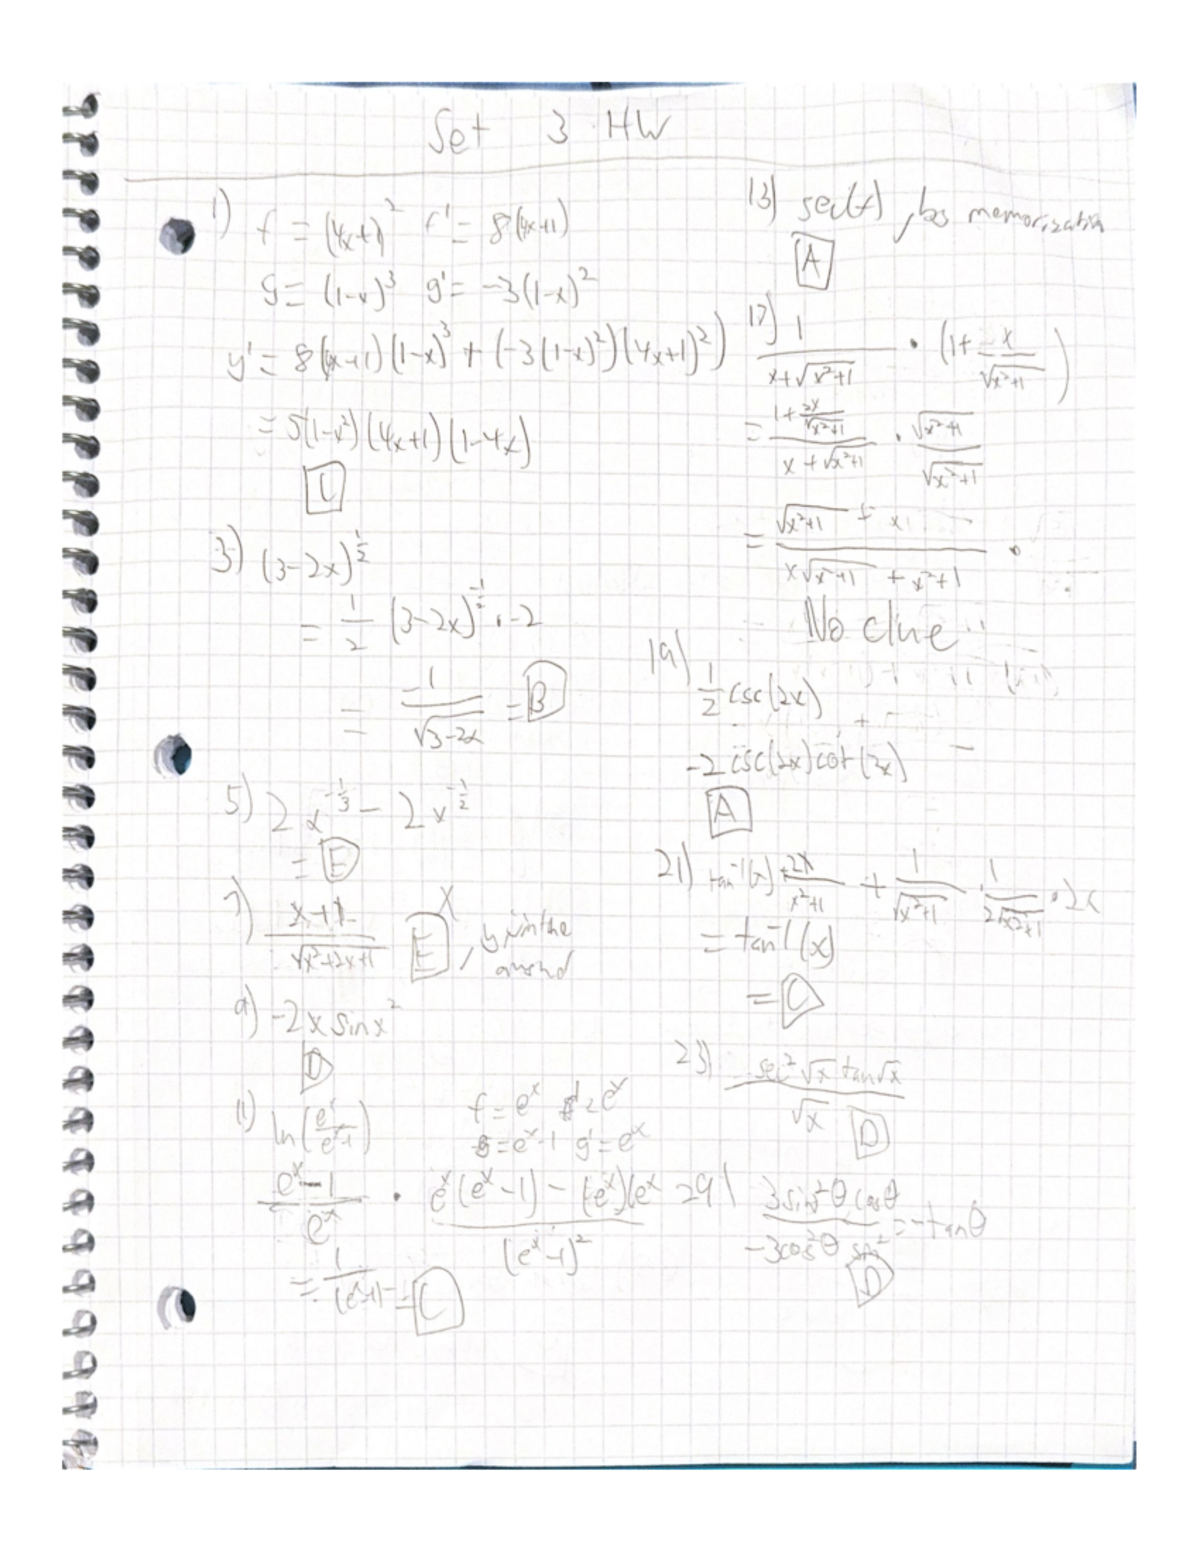 Set 3 HW
1) f = (4x+1)² f' = 8(4x+1)
g = (1-x)³ g' = -3(1-x)²
y' = 8(4x+1)(1-x)³ + (-3(1-x)²)(4x+1)²)
= 5(1-x²)(4x+1)(1-4x)
C
3) (3-2x)^½
= 1/2 (3-2x)^-½ · -2
= -1/√(3-2x) = B
5) 2x^-⅓ - 2x^-½
= E
7) (x+1)/√(x²+2x+1) E X, y in the
9) -2x sin x²
D
11) ln(e^x/(e^x-1)) f = e^x f' = e^x
g = e^x-1 g' = e^x
(e^x-1)/e^x · (e^x(e^x-1) - (e^x)(e^x)/(e^x-1)²
= 1/(e^x-1) = C
13) sec(t), bs memorization
A
17) 1/(x+√(x²+1)) · (1+x/√(x²+1))
= (1+2x/√(x²+1))/(x+√(x²+1)) · √(x²+1)/√(x²+1)
= (√(x²+1) + x)/(x√(x²+1) + x²+1) ·
No clue
19) 1/2 csc(2x)
-2 csc(2x)cot(2x)
A
21) tan⁻¹(x) + 2x/(x²+1) + 1/√(x²+1) · 1/(2√(x²+1)) · 2x
= tan⁻¹(x)
= C
23) sec²√x tan√x/√x D
29) 3sin²θ cosθ/-3cos²θ sin = -tanθ
D